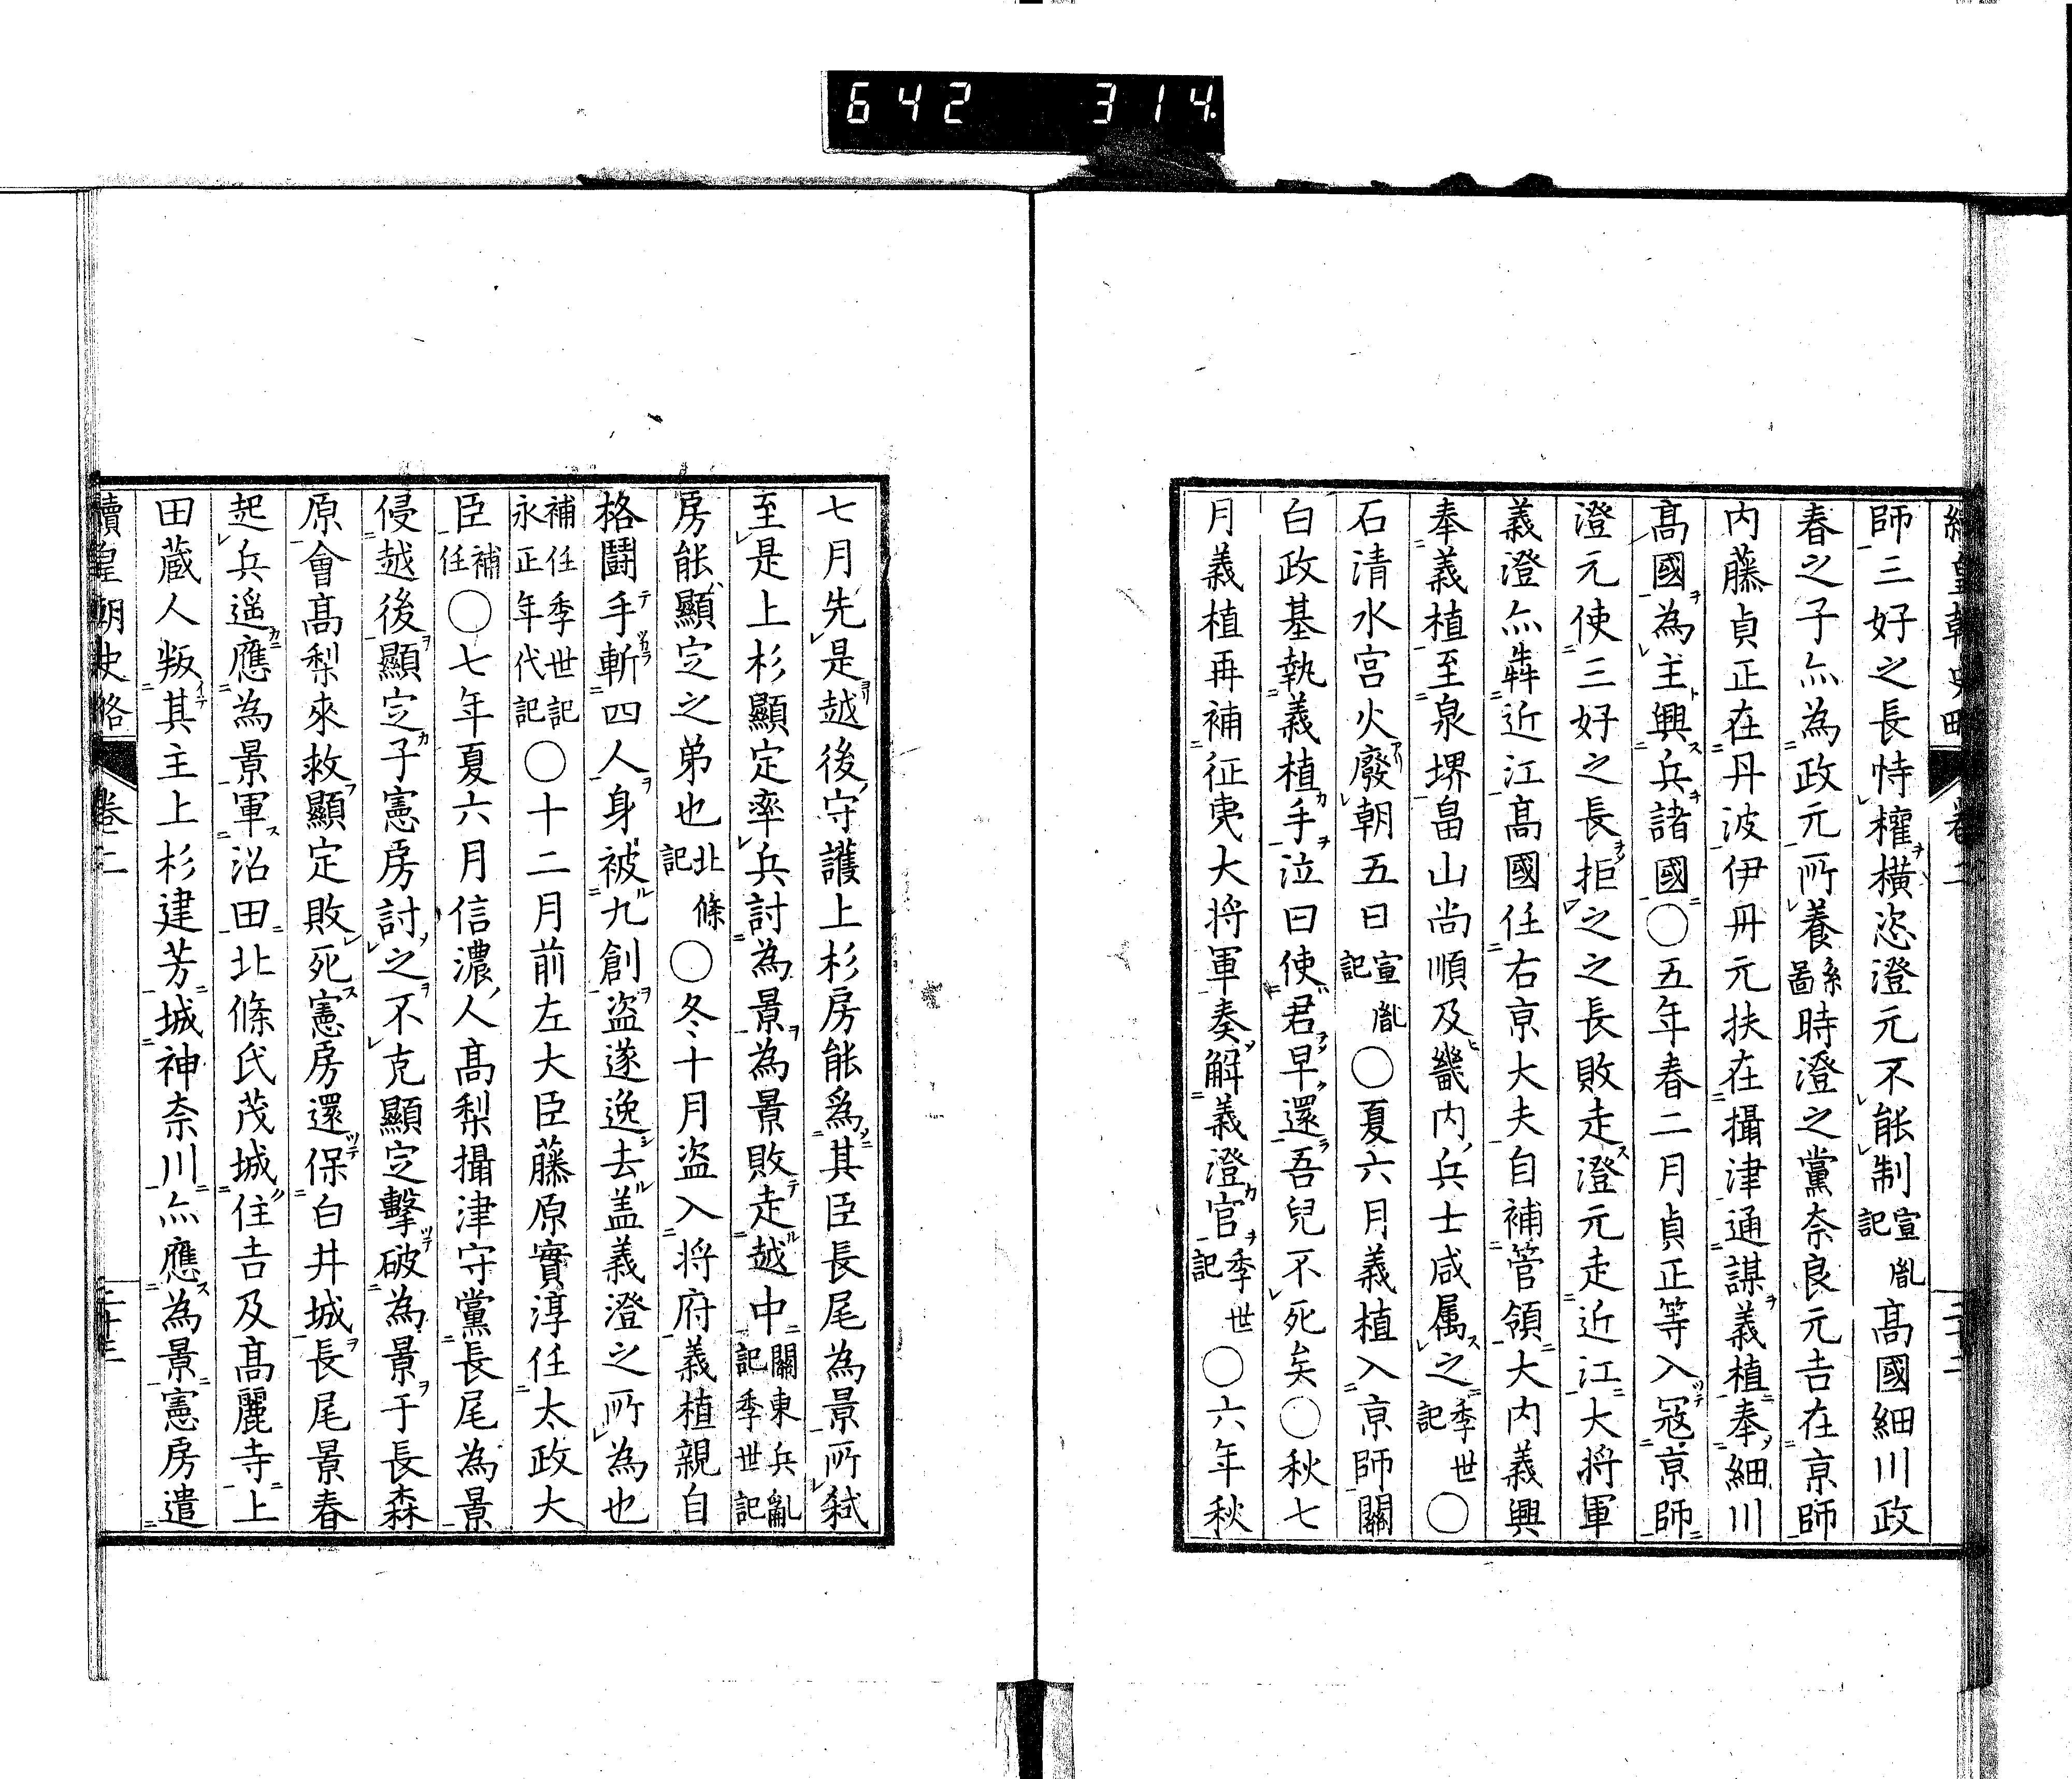 642 314
續皇朝史略 卷二 二十二
師三好之長恃權橫恣澄元不能制宣胤記高國細川政
春之子亦為政元所養系啚時澄之黨奈良元吉在亰師
内藤貞正在丹波伊丹元扶在攝津通謀義植奉細川
髙國為主興兵諸國〇五年春二月貞正等入寇亰師
澄元使三好之長拒之之長敗走澄元走近江大将軍
義澄亦犇近江髙國任右亰大夫自補管領大内義興
奉義植至泉堺畠山尚順及畿内兵士咸属之季世記〇
石清水宮火廢朝五日宣胤記〇夏六月義植入亰師關
白政基執義植手泣曰使君早還吾兒不死矣〇秋七
月義植再補征夷大将軍奏解義澄官季世記〇六年秋
七月先是越後守護上杉房能為其臣長尾為景所弑
至是上杉顯定率兵討為景為景敗走越中關東兵亂記季世記
房能顯定之弟也北條記〇冬十月盜入将府義植親自
格鬪手斬四人身被九創盜遂逸去盖義澄之所為也
補任季世記永正年代記〇十二月前左大臣藤原實淳任太政大
臣補任〇七年夏六月信濃人髙梨攝津守黨長尾為景
侵越後顯定子憲房討之不克顯定擊破為景于長森
原會髙梨來救顯定敗死憲房還保白井城長尾景春
起兵遥應為景軍沼田北條氏茂城住吉及髙麗寺上
田蔵人叛其主上杉建芳城神奈川亦應為景憲房遣
續皇朝史略 卷二 二十三